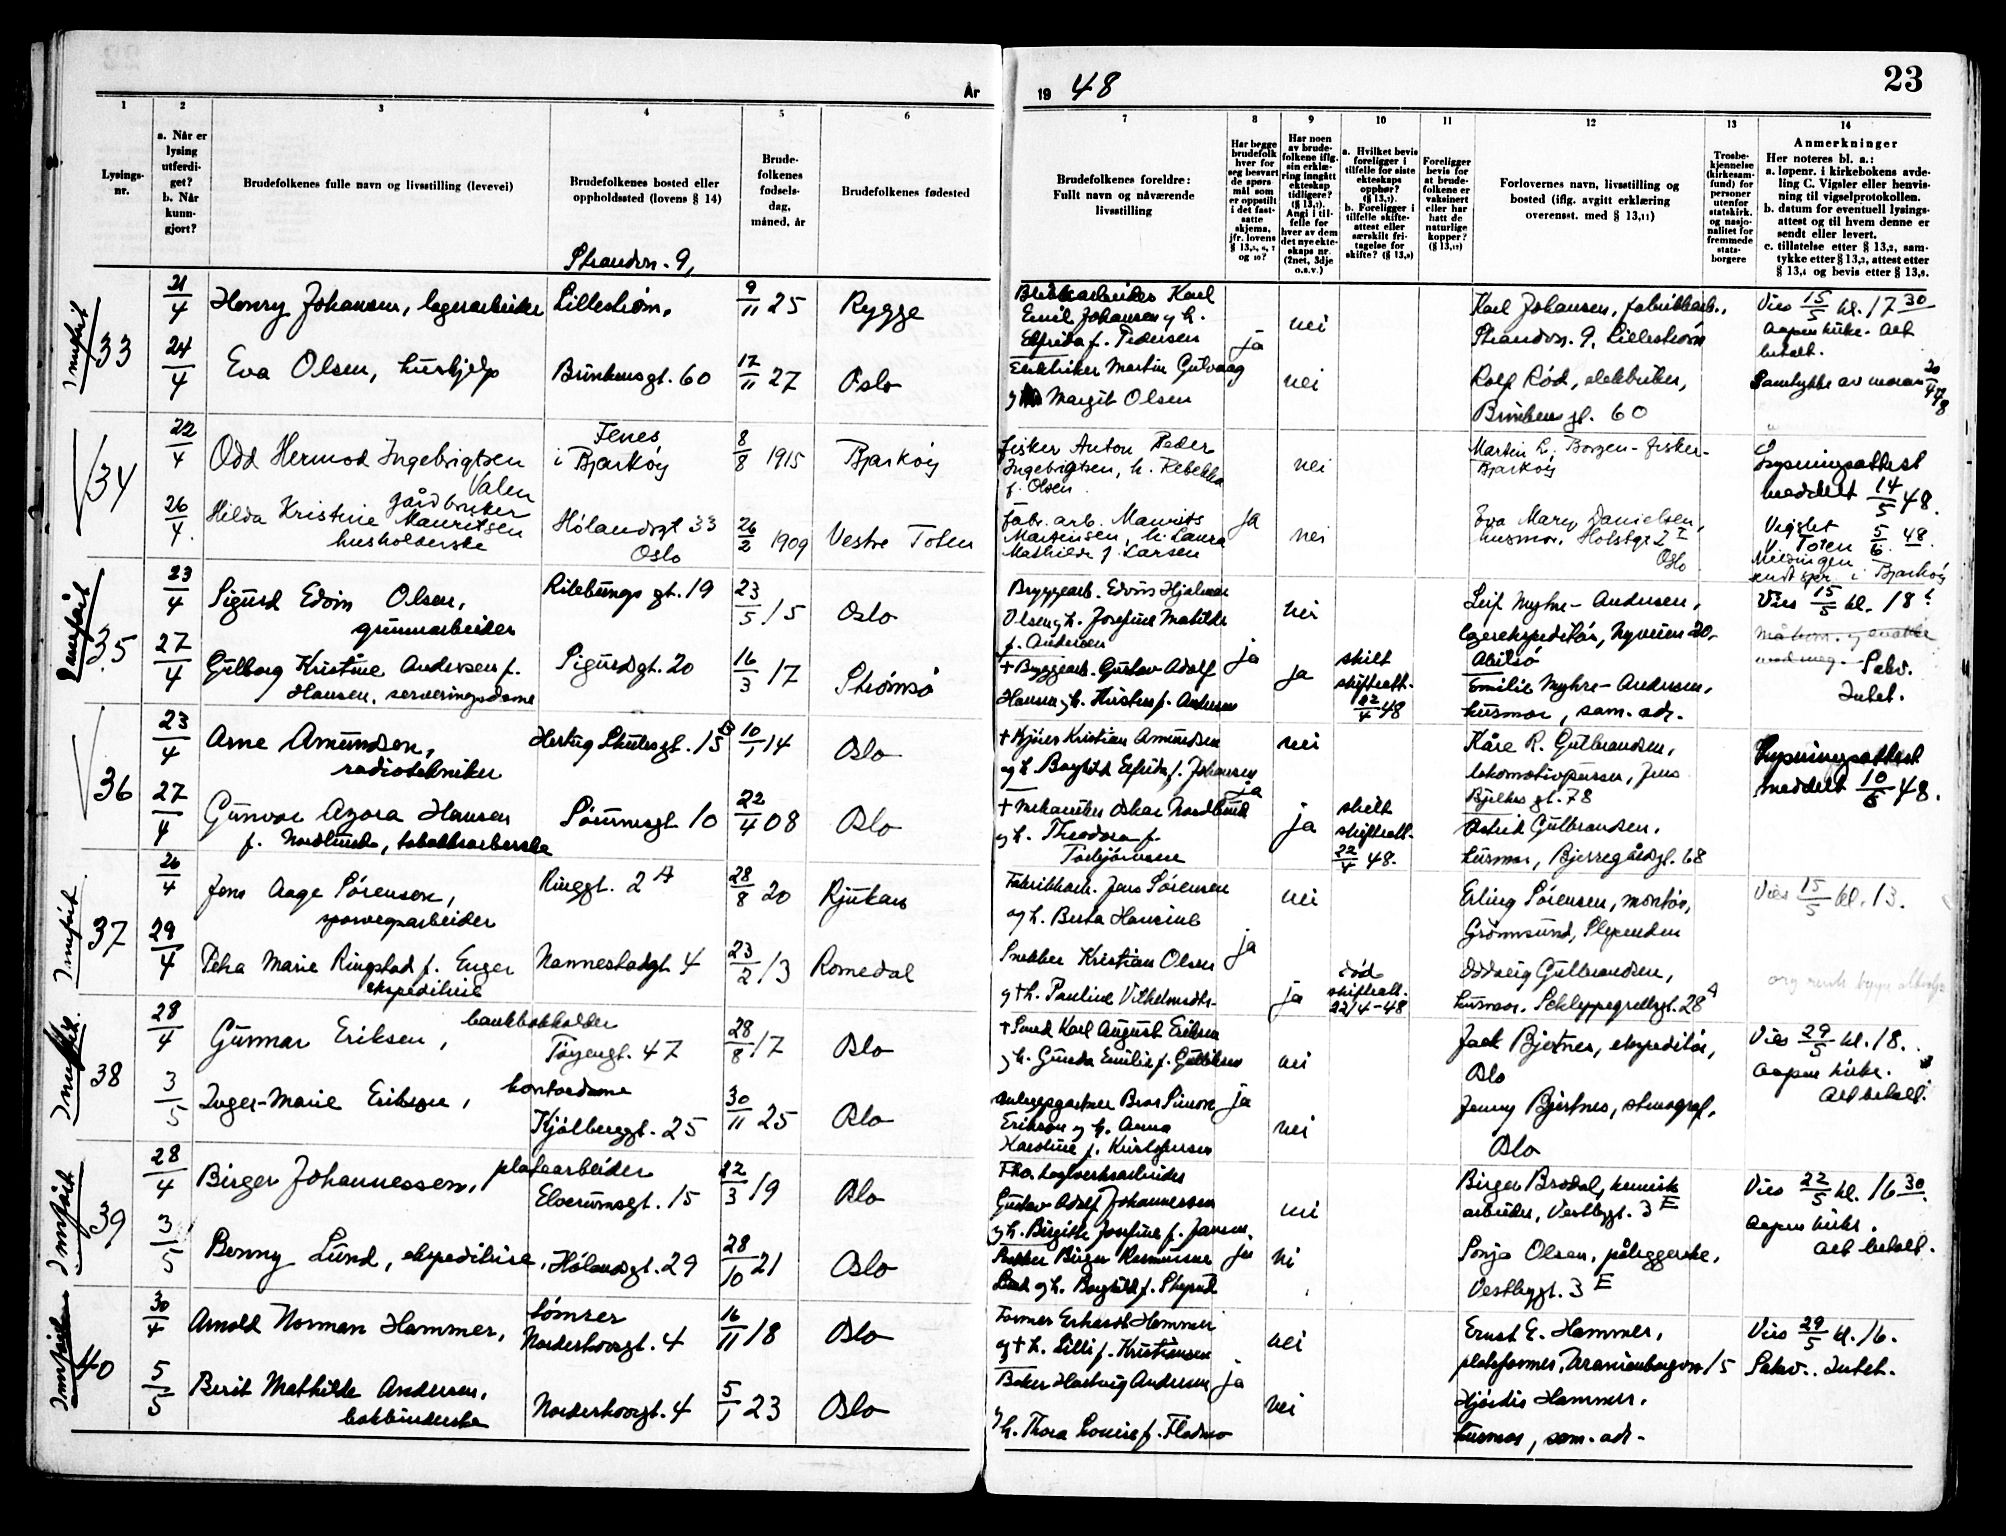 År
19 48
23
1
2
3
4
5
6
7
8
9
10
11
12
13
14
Lysings-
nr.
a. Når er
lysing
utferdi-
get?
b. Når
kunn-
gjort?
Brudefolkenes fulle navn og livsstilling (levevei)
Brudefolkenes bosted eller
oppholdssted (lovens § 14)
Brude-
folkenes
fødsels-
dag,
måned, år
Brudefolkenes fødested
Brudefolkenes foreldre:
Fullt navn og nåværende
livsstilling
Har begge
brudefolk
hver for
seg besvart
de spørs
mål som
er oppstilt
i det fast-
satte
skjema,
jfr. lovens
Har noen
av brude-
folkene iflg.
sin erklæ-
ring inngått
ekteskap
tidligere?
(§ 13,1).
Angi i til-
felle for
hver av dem
det nye ekte-
skaps nr.
(2net, 3dje
o.s.v.)
a. Hvilket bevis
foreligger i
tilfelle for siste
ekteskaps
opphør?
b. Foreligger i
tilfelle skifte-
attest eller
særskilt fri-
tagelse for
Foreligger
bevis for
at brude-
folkene er
vaksinert
eller har
hatt de
naturlige
kopper?
Forlovernes navn, livsstilling og
bosted (iflg. avgitt erklæring
overensst. med § 13,11)
Trosbe-
kjennelse
(kirkesam-
fund) for
personer
utenfor
statskirk.
og nasjo-
nalitet for
fremmede
stats-
borgere
Anmerkninger
Her noteres bl. a.:
a. løpenr. i kirkebokens avde-
ling C. Vigsler eller henvis-
ning til vigselprotokollen.
b. datum for eventuell lysings-
attest og til hvem denne er
sendt eller levert.
c. tillatelse etter § 13,2, sam-
tykke etter § 13,3, attest etter
§ 13,4 og bevis etter § 13,8.
Innført
33
21/4
Henry Johansen, lagerarbeider
Strandvn. 9,
Lillestrøm.
9/11 25
Rygge
Karl
Emil Johansen og h.
Elfrida f. Pedersen
ja
nei
Karl Johansen, fabrikkarb.,
Strandvn. 9, Lillestrøm
Vies 15/5 kl. 17 30
aapen kirke. Alt
betalt.
24/4
Eva Olsen, hushjelp
Brinkensgt. 60
17/11 27
Oslo
Elektriker Martin Gulvaag
og Margit Olsen
nei
Rolf Rød, elektriker,
Brinkens gt. 60
Samtykke av moren 20/4 48
34
22/4
Odd Hermod Ingebrigtsen
Valen
gårdbruker
Fenes
i Bjarkøy
8/8 1915
Bjarkøy
fisker Anton Peder
Ingebrigtsen, h. Rebekka
f. Olsen
ja
nei
Martin L. Borgen - fisker -
Bjarkøy
Lysningsattest
meddelt 14/5 48.
26/4
Hilda Kristine Mauritsen
husholderske
Hølandsgt 33
Oslo
26/2 1909
Vestre Toten
fabr. arb. Maurits
Martinsen, h. Laura
Mathilde f. Larsen
nei
Eva Mary Danielsen,
husmor, Holstgt 2 I
Oslo
Vigslet
V. Toten 5/6 48.
Meldingen
sendt spr. i Bjarkøy
Innført
35
23/4
Sigurd Edvin Olsen,
grunnarbeider
Rileborgs gt. 19
23/5 15
Oslo
Byggearb. Edvin Hjalmar
Olsen og h. Josefine Matilde
f. Andersen
ja
nei
Leif Myhre-Andersen,
lagerekspeditør, Nyveien 20,
Abilsø
Vies 15/5 kl. 18
27/4
Gulborg Kristine Andersen f.
Hansen, serveringsdame
Sigurdsgt. 20
16/3 17
Strømsø
+ Byggearb. Gustav Adolf
Hansen og h. Kristine f. Andersen
ja
skilt
skifteatt.
22/4 48
Emilie Myhre-Andersen,
husmor, sam. adr.
Sakv.
Intet.
36
23/4
Arne Amundsen,
radiotekniker
Hertug Skulesgt. 15 B
10/1 14
Oslo
+ Kjører Kristian Amundsen
og h. Borghild Elfrida f. Johansen
ja
nei
Kåre R. Gulbrandsen,
lokomotivpusser, Jens
Bjelkes gt. 78
Lysningsattest
meddelt 10/6 48.
27/4
Gunvor Azora Hansen
f. Nordlund, tobakksarbeiderske
Sørumsgt. 10
22/4 08
Oslo
+ Mekaniker Oskar Nordlund
og h. Theodora f.
Torbjørnsen
ja
skilt
skifteatt.
22/4 48.
Astrid Gulbrandsen,
husmor, Bjerregårdsgt. 68
Innført
37
26/4
Jens Aage Sørensen,
sporvegsarbeider
Ringgt. 2 A
28/8 20
Rjukan
Fabrikkarb. Jens Sørensen
og h. Berta Hansine
ja
nei
Erling Sørensen, montør,
Grønnsund, Slependen
Vies 15/5 kl. 13.
29/4
Petra Marie Ringstad f. Enger
ekspeditrise
Nannestadgt. 4
23/2 13
Romedal
Snekker Kristian Olsen
og + h. Pauline Vilhelmsdtr.
ja
død
skifteatt.
22/4-48
Oddveig Gulbrandsen,
husmor. Schleppegrellsgt. 28 A
Innført.
38
28/4
Gunnar Eriksen,
bankbokholder
Tøyengt. 47
28/8 17
Oslo
+ Smed Karl August Eriksen
og h. Gunda Emilie f. Gulliksen
ja
nei
Jack Bjertnes, ekspeditør,
Oslo
Vies 29/5 kl. 18.
aapen kirke.
Alt betalt.
3/5
Inger-Marie Eriksen,
kontordame
Kjølberggt. 25
30/11 25
Oslo
Anleggsgartner Bror Simon
Erikson og h. Anna
Karoline f. Kristofersen
nei
Jenny Bjertnes, stenograf,
Oslo
Innført
39
28/4
Birger Johannessen, platearbeider
Elverumsgt. 15
22/3 19
Oslo
Gustav Adolf Johannessen
og h. Birgitte Josefine f. Jansen.
ja
nei
Birger Brodal, kemisk
arbeider, Vestbygt. 3 E
Vies 22/5 kl. 16 30.
aapen kirke.
alt betalt.
3/5
Bonny Lund, ekspeditrise,
Hølandsgt. 29
28/10 21
Oslo
Birger Rasmussen
Lund og h. Borghild f. Skjerud
nei
Sonja Olsen, påleggerske,
Vestbygt. 3 E
Innført
40
30/4
Arnold Norman Hammer,
tømrer
Norderhovsgt. 4
16/11 18
Oslo
Former Erhardt Hammer
og + h. Lilli f. Kristiansen
ja
nei
Ernst E. Hammer,
plateformer, Uranienborgvn 15
Vies 29/5 kl. 16.
Sakv. Intet.
5/5
Berit Mathilde Andersen,
bokbinderske
Norderhovsgt. 4
5/1 23
Oslo
Baker Hartvig Andersen
og h. Thora Louise f. Flodmo
nei
Hjørdis Hammer,
husmor, sam. adr.